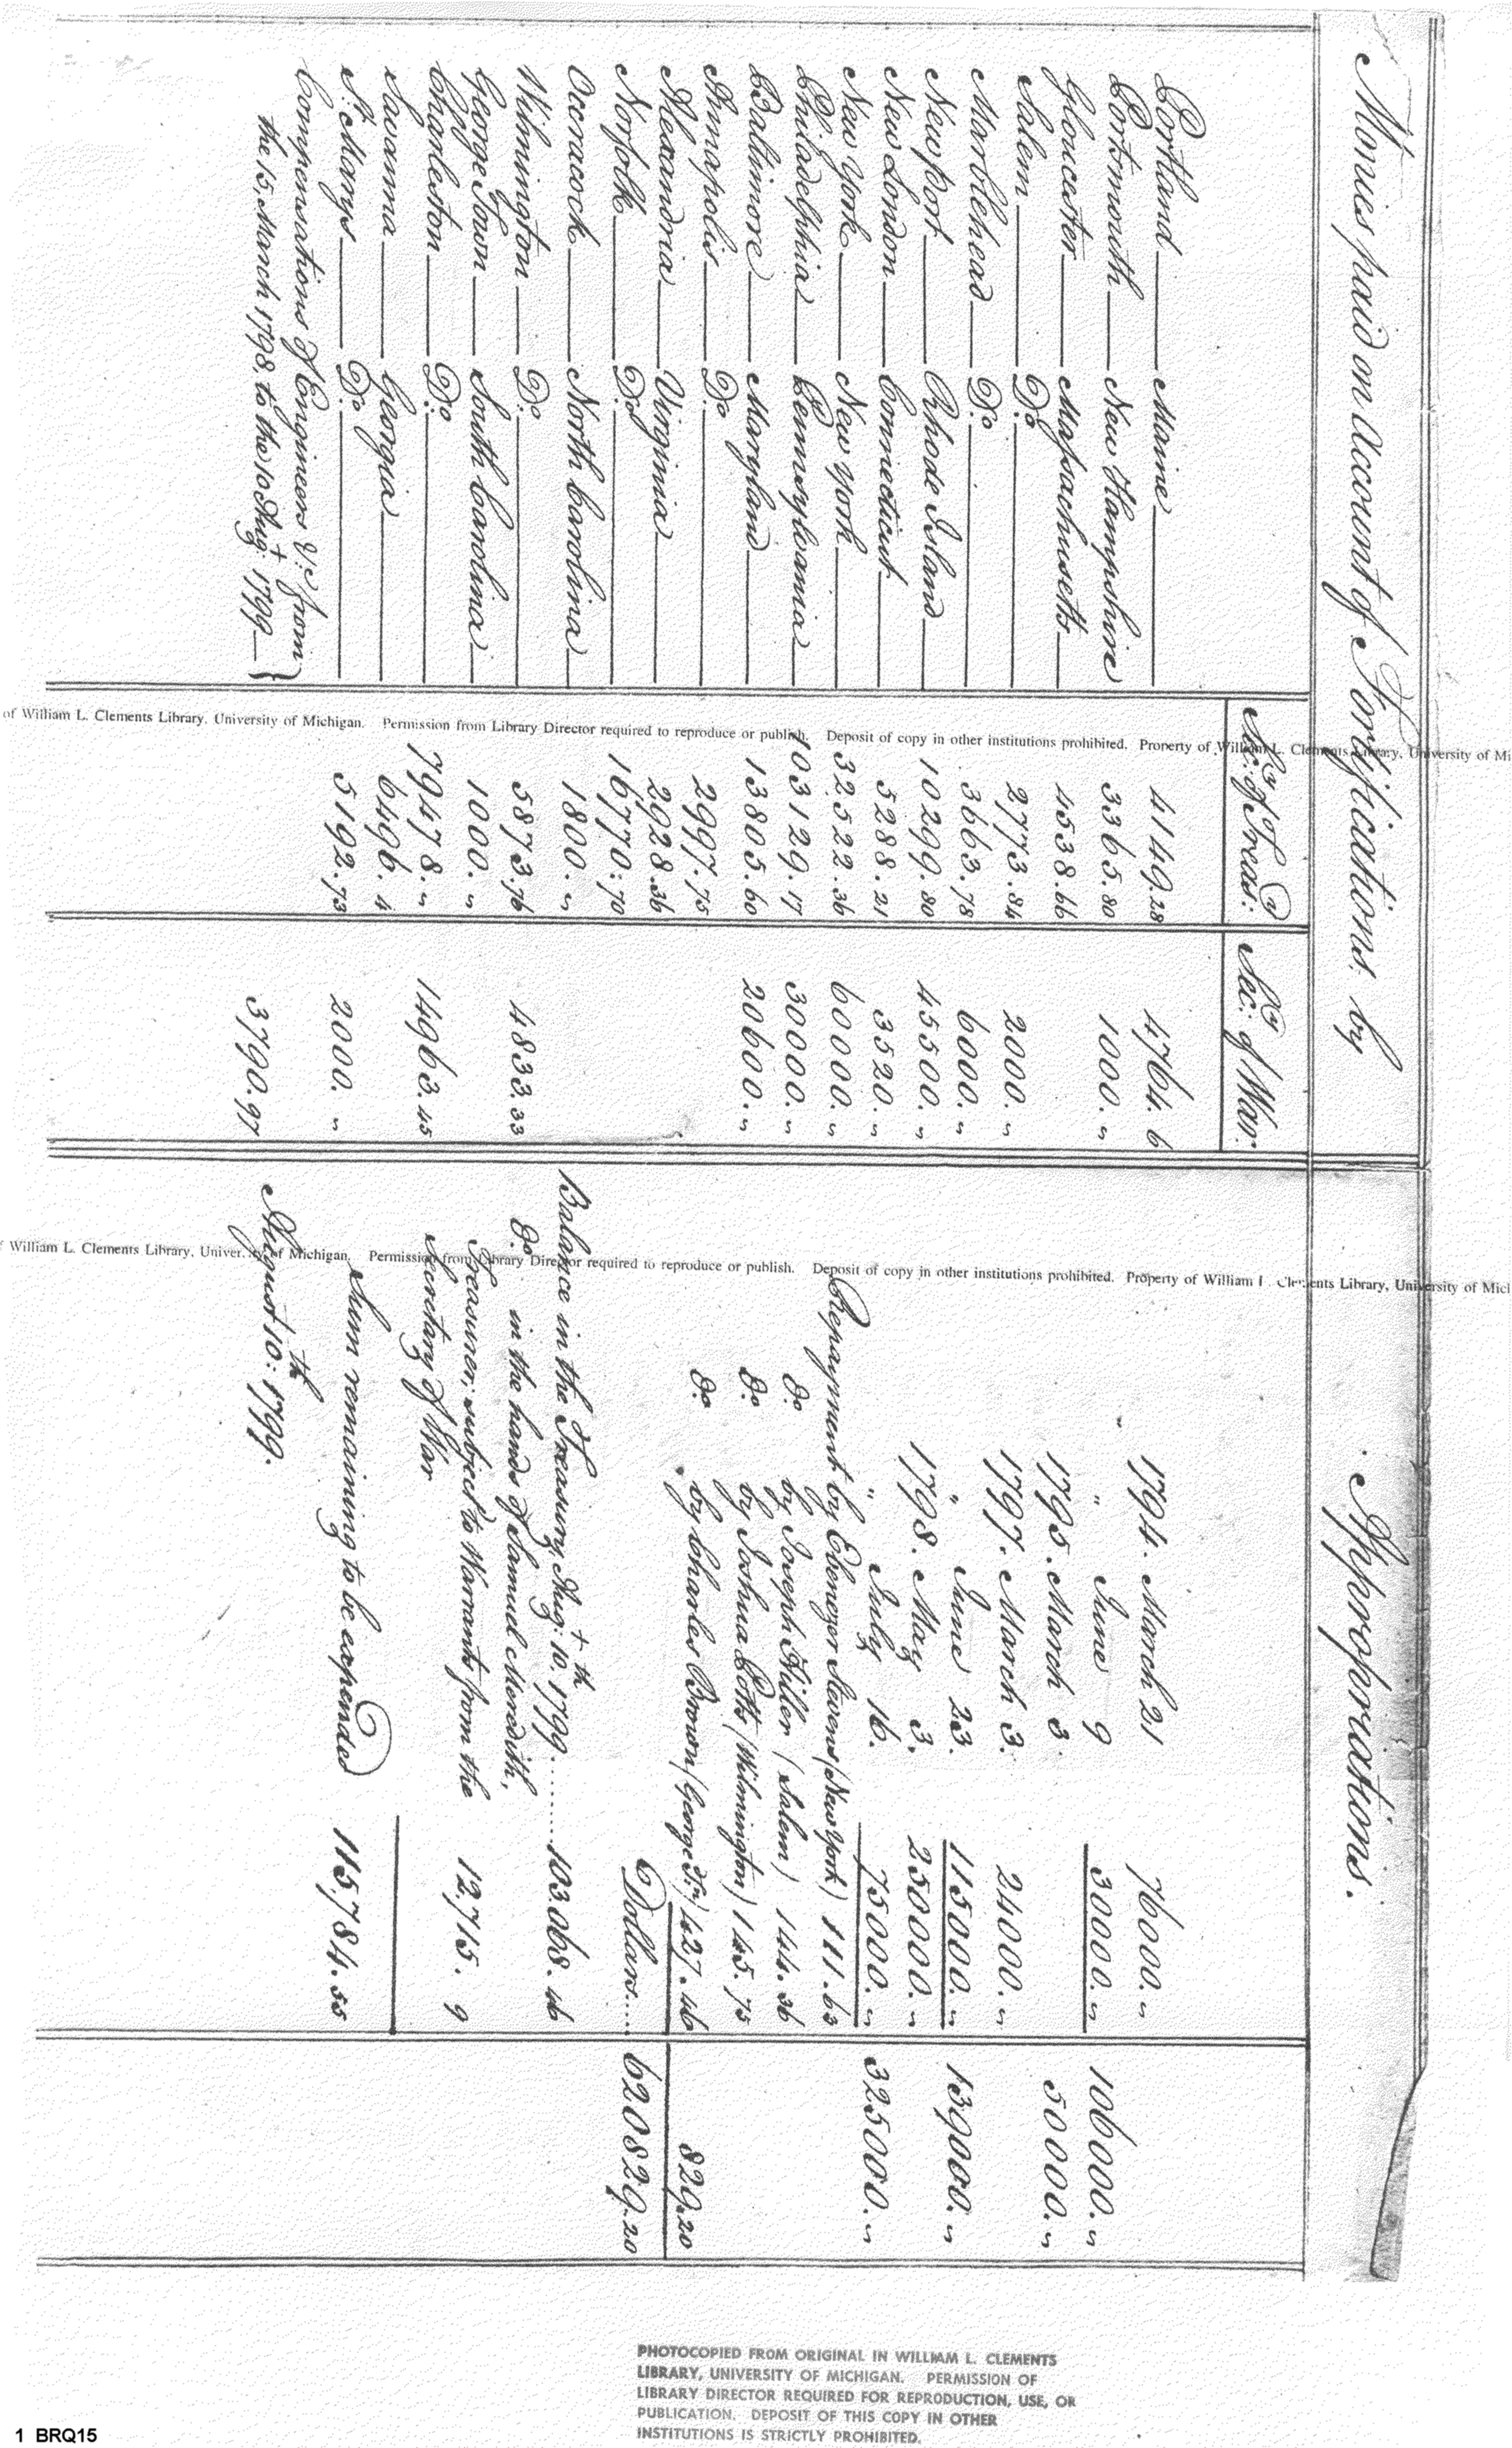 Monies paid on Account of Fortifications. by
Appropriations.
Secy: of Treasy:
Secy: of War:
Portland Maine 4149.28 4764. 6
Portsmouth New Hampshire 3365.80 1000. "
Gloucester Massachusetts 4538.66
Salem Do. 2773.84 2000. "
Marblehead Do. 3663.78 6000. "
New Port Rhode Island 10299.80 45500. "
New London Connecticut 5288.21 3520. "
New York New York 32522.36 60000. "
Philadelphia Pennsylvania 103129.17 30000. "
Baltimore Maryland 13805.60 20600. "
Annapolis Do. 2997.75
Alexandria Virginia 2928.36
Norfolk Do. 16770.70
Occracock North Carolina 1800. "
Wilmington Do. 5873.76 4833.33
George Town South Carolina 1000. "
Charleston Do. 79478. " 14963.45
Savanna Georgia 6496. 4
St: Marys Do. 5192.73 2000. "
Compensations of Engineers &c: from
the 15, March 1798, to the 10 Augt: 1799 } 3790.97
1794. March 21 76000. "
" June 9 30000. " 106000. "
1795. March 3 50000. "
1797. March 3. 24000. "
" June 23. 115000. " 139000. "
1798. May 3. 250000. "
" July 16. 75000. " 325000. "
Repayment by Ebenezer Stevens (New York) 111.63
do. by Joseph Hiller (Salem) 144.36
do. by Joshua Potts (Wilmington) 145.75
do. by Charles Brown (George Tn.) 427.46 829.20
Dollars.... 620829.20
Balance in the Treasury, Augt: 10th. 1799....... 103.068.46
do. in the hands of Samuel Meredith,
Treasurer; subject to Warrants from the
Secretary of War 12,715. 9
Sum remaining to be expended 115,784.55
August 10th: 1799.
of William L. Clements Library, University of Michigan. Permission from Library Director required to reproduce or publish. Deposit of copy in other institutions prohibited. Property of William L. Clements Library, University of Mi
William L. Clements Library, University of Michigan. Permission from Library Director required to reproduce or publish. Deposit of copy in other institutions prohibited. Property of William L. Clements Library, University of Micl
PHOTOCOPIED FROM ORIGINAL IN WILLIAM L. CLEMENTS
LIBRARY, UNIVERSITY OF MICHIGAN. PERMISSION OF
LIBRARY DIRECTOR REQUIRED FOR REPRODUCTION, USE, OR
PUBLICATION. DEPOSIT OF THIS COPY IN OTHER
INSTITUTIONS IS STRICTLY PROHIBITED.
1 BRQ15